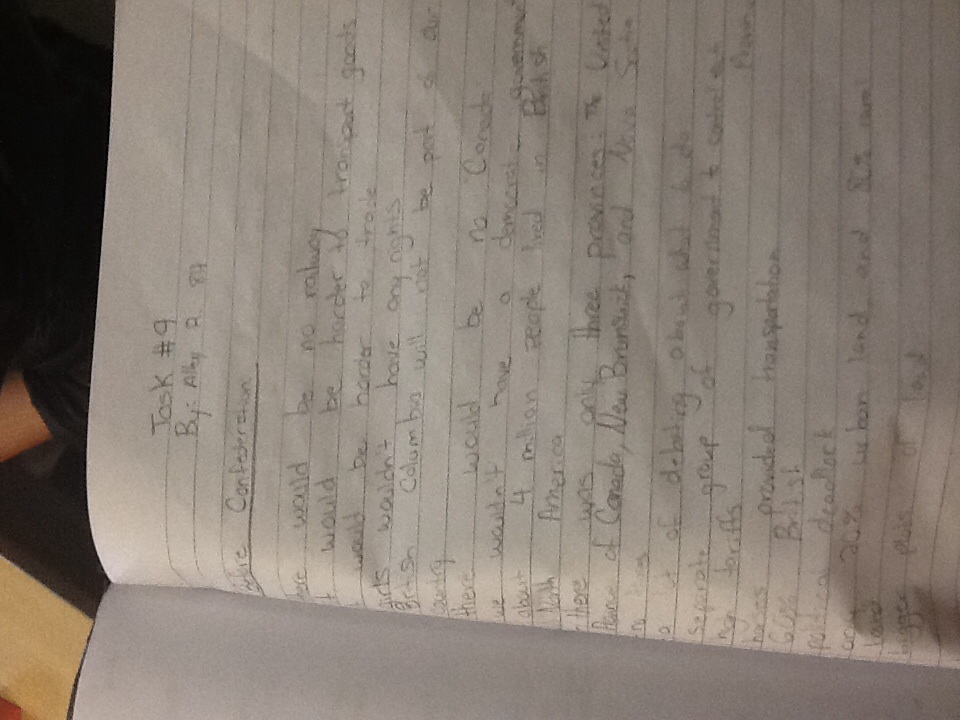 Task #9
By: Ally R 8H
Before Confederation
there would be no railway
it would be harder to transport goods
it would be harder to trade
girls wouldn't have any rights
British Columbia will not be part of our
country
there would be no Canada
we wouldn't have a democratic government
about 4 million people lived in British
North America
there was only three provinces: The United
Province of Canada, New Brunswick, and Nova Scotia
no
a lot of debating about what to do
separate group of government to control
high tariffs
horses provided transportation
60% British
political deadlock
and 20% urban land and 80% rural
land
bigger plots of land